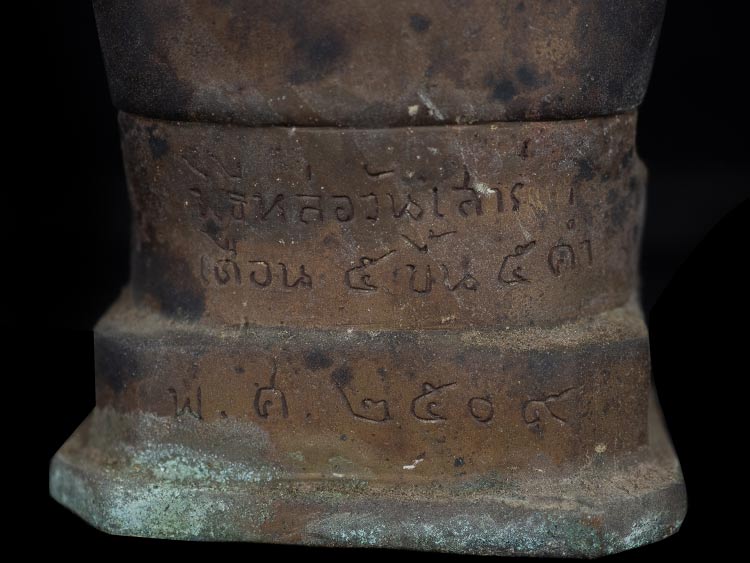 พิธีหล่อวันเสาร์
เดือน ๕ ขึ้น ๕ ค่ำ
พ.ศ. ๒๕๐๙